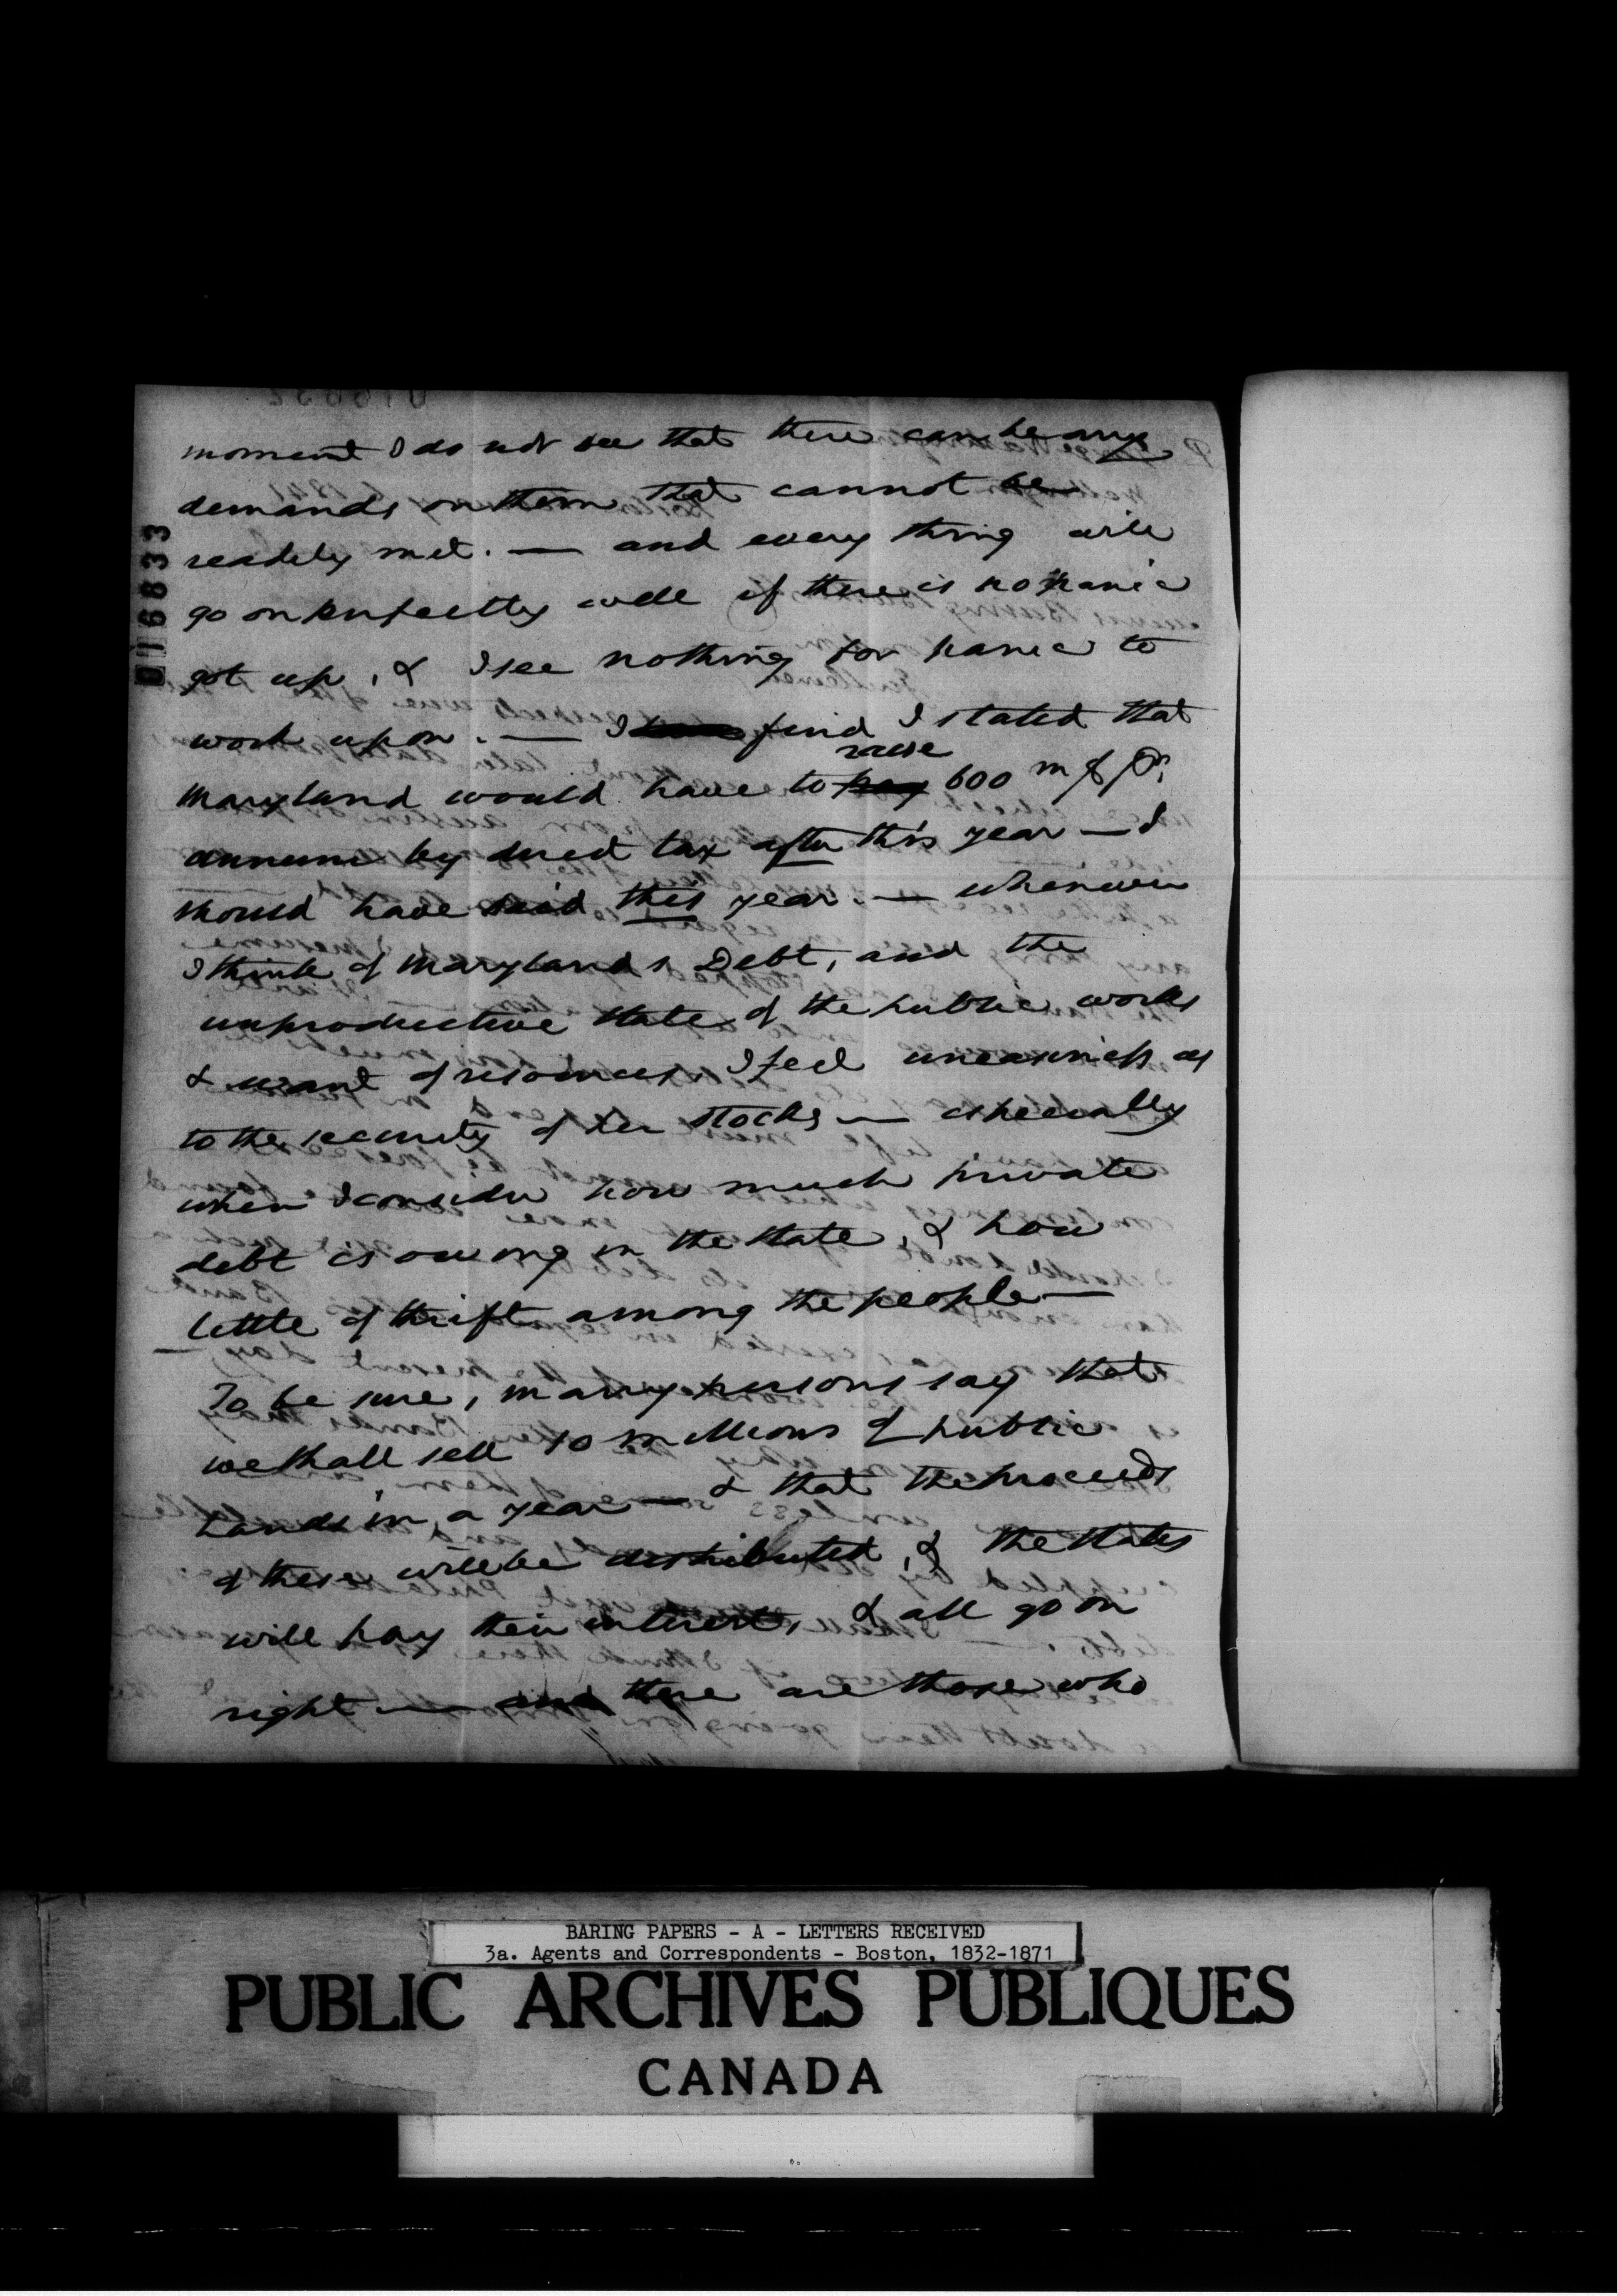 moment I do not see that there can be any
demands on them that cannot be
readily met. — and every thing will
go on perfectly well if there is no panic
got up, & I see nothing for panic to
work upon. — I find I stated that
Maryland would have to pay raise 600 m $ pr
annum by direct tax after this year — I
should have said this year. — whenever
I think of Marylands Debt, and the
unproductive state of the public works
& want of resources, I feel uneasiness as
to the security of her stocks — especially
when I consider how much private
debt is owing in the State, & how
little of thrift among the people —
To be sure, many persons say that
we shall sell 10 millions of public
Lands in a year — & that the proceeds
of these will be distributed, & the States
will pay their interest, & all go on
right — and there are those who
016833
BARING PAPERS - A - LETTERS RECEIVED
3a. Agents and Correspondents - Boston, 1832-1871
PUBLIC ARCHIVES PUBLIQUES
CANADA